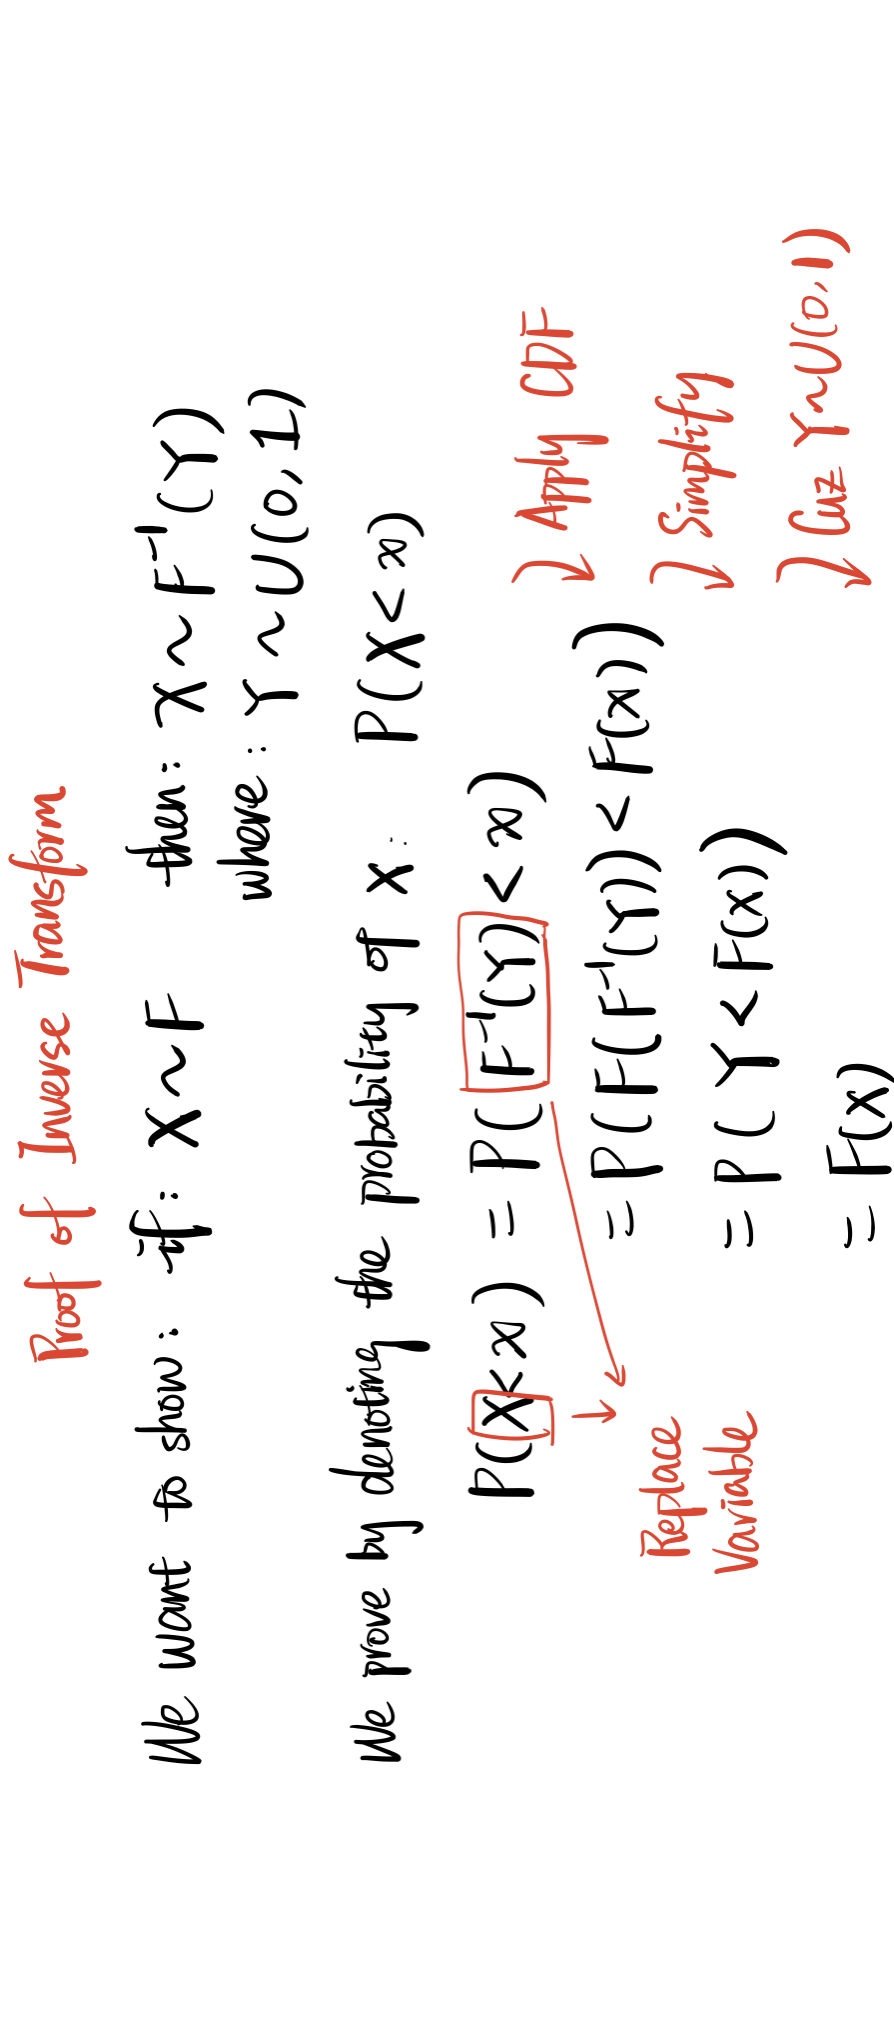 Proof of Inverse Transform
We want to show: if: X ~ F then: X ~ F⁻¹(Y)
where: Y ~ U(0, 1)
We prove by denoting the probability of X: P(X < x)
P(X < x) = P(F⁻¹(Y) < x)
Apply CDF
= P(F(F⁻¹(Y)) < F(x))
Replace
Variable
Simplify
= P(Y < F(x))
Cuz Y~U(0,1)
= F(x)